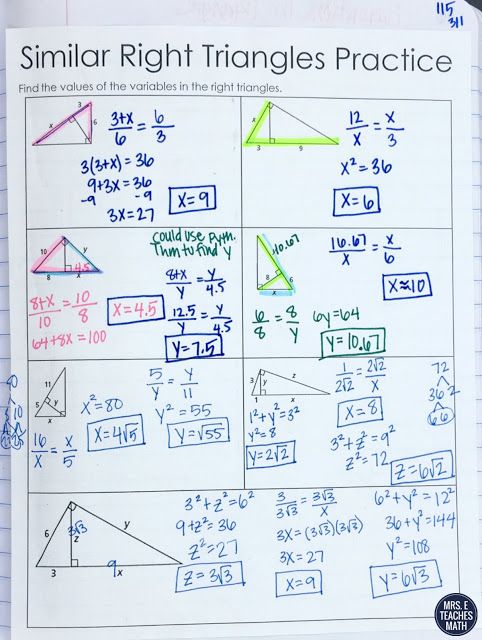 115
311
Similar Right Triangles Practice
Find the values of the variables in the right triangles.
3
x
6
3+x/6 = 6/3
3(3+x) = 36
9+3x = 36
-9 -9
3x = 27
x = 9
x
3
9
12/x = x/3
x² = 36
x = 6
10
y
8
x
4.5
could use Pyth.
Thm to find y
8+x/10 = 10/8
64+8x = 100
x = 4.5
8+x/y = y/4.5
12.5/y = y/4.5
y = 7.5
10.67
8
6
x
16.67/x = x/6
x ≈ 10
6/8 = 8/y
6y = 64
y = 10.67
80
11
5
y
x
16/x = x/5
x² = 80
x = 4√5
5/y = y/11
y² = 55
y = √55
3
y
z
1
x
1² + y² = 3²
y² = 8
y = 2√2
1/2√2 = 2√2/x
x = 8
3² + z² = 9²
z² = 72
z = 6√2
72
36 2
6 6
6
3√3
z
y
3
9
x
3² + z² = 6²
9 + z² = 36
z² = 27
z = 3√3
3/3√3 = 3√3/x
3x = (3√3)(3√3)
3x = 27
x = 9
6² + y² = 12²
36 + y² = 144
y² = 108
y = 6√3
MRS. E
TEACHES
MATH